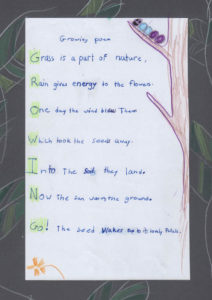 Growing poem
Grass is a part of nature,
Rain gives energy to the flowers.
One day the wind blew Them
Which took the seeds away.
Into The Soil, they land.
Now The Sun warms the ground.
Go! The Seed Wakes up to its lovely Petals.